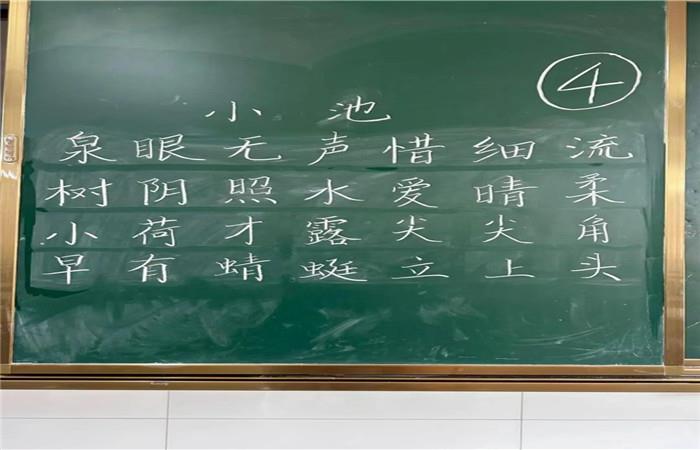 ④
小池
泉眼无声惜细流
树阴照水爱晴柔
小荷才露尖尖角
早有蜻蜓立上头